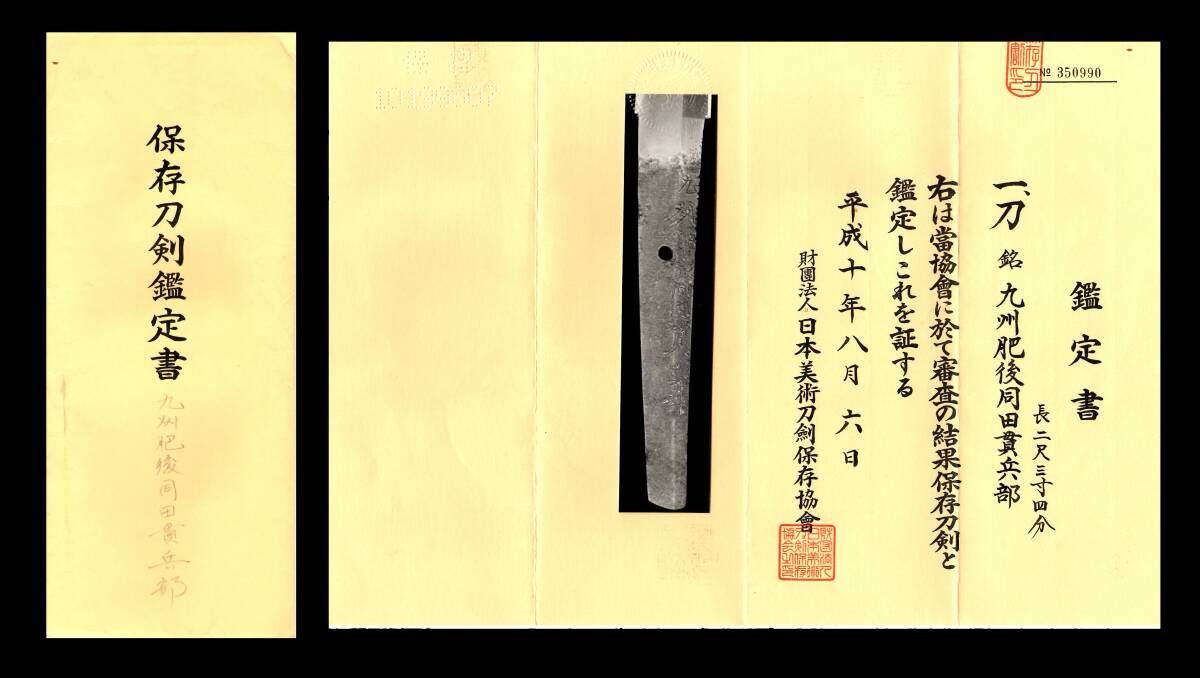 保存刀剣鑑定書
九州肥後同田貫兵部
№ 350990
鑑定書
一、刀 銘 九州肥後同田貫兵部
長二尺三寸四分
右は當協會に於て審査の結果保存刀剣と
鑑定しこれを証する
平成十年八月六日
財團法人日本美術刀劍保存協會